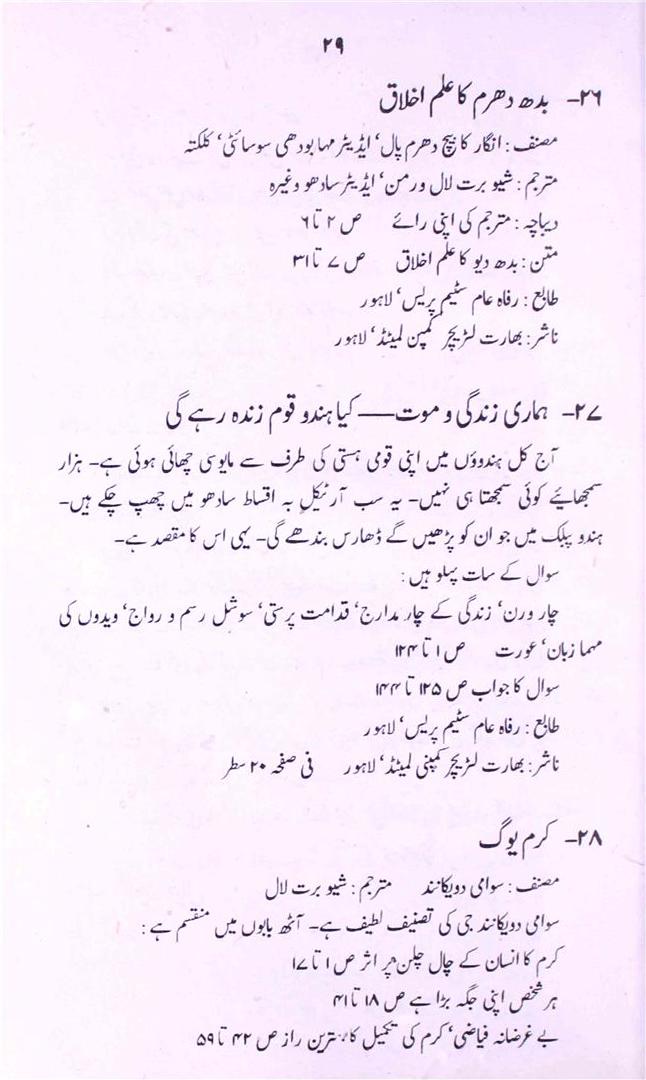 ۲۹
۲۶- بدھ دھرم کا علم اخلاق
مصنف : انگار کا بیج دھرم پال، ایڈیٹر مہا بودھی سوسائٹی، کلکتہ
مترجم : شیو برت لال ورمن، ایڈیٹر سادھو وغیرہ
دیباچہ : مترجم کی اپنی رائے ص ۲ تا ۶
متن : بدھ دیو کا علم اخلاق ص ۷ تا ۳۱
طابع : رفاہ عام سٹیم پریس، لاہور
ناشر : بھارت لٹریچر کمپن لمیٹڈ، لاہور
۲۷- ہماری زندگی و موت —— کیا ہندو قوم زندہ رہے گی
آج کل ہندوؤں میں اپنی قومی ہستی کی طرف سے مایوسی چھائی ہوئی ہے- ہزار
سمجھائیے کوئی سمجھتا ہی نہیں- یہ سب آرٹیکل بہ اقساط سادھو میں چھپ چکے ہیں-
ہندو پبلک میں جو ان کو پڑھیں گے ڈھارس بندھے گی- یہی اس کا مقصد ہے-
سوال کے سات پہلو ہیں :
چار ورن، زندگی کے چار مدارج، قدامت پرستی، سوشل رسم و رواج، ویدوں کی
مہما زبان، عورت ص ۱ تا ۱۲۴
سوال کا جواب ص ۱۲۵ تا ۱۴۴
طابع : رفاہ عام سٹیم پریس، لاہور
ناشر : بھارت لٹریچر کمپنی لمیٹڈ، لاہور فی صفحہ ۲۰ سطر
۲۸- کرم یوگ
مصنف : سوامی دویکانند مترجم : شیو برت لال
سوامی دویکانند جی کی تصنیف لطیف ہے- آٹھ بابوں میں منقسم ہے :
کرم کا انسان کے چال چلن پر اثر ص ۱ تا ۱۷
ہر شخص اپنی جگہ بڑا ہے ص ۱۸ تا ۴۱
بے غرضانہ فیاضی، کرم کی تکمیل کا بہترین راز ص ۴۲ تا ۵۹